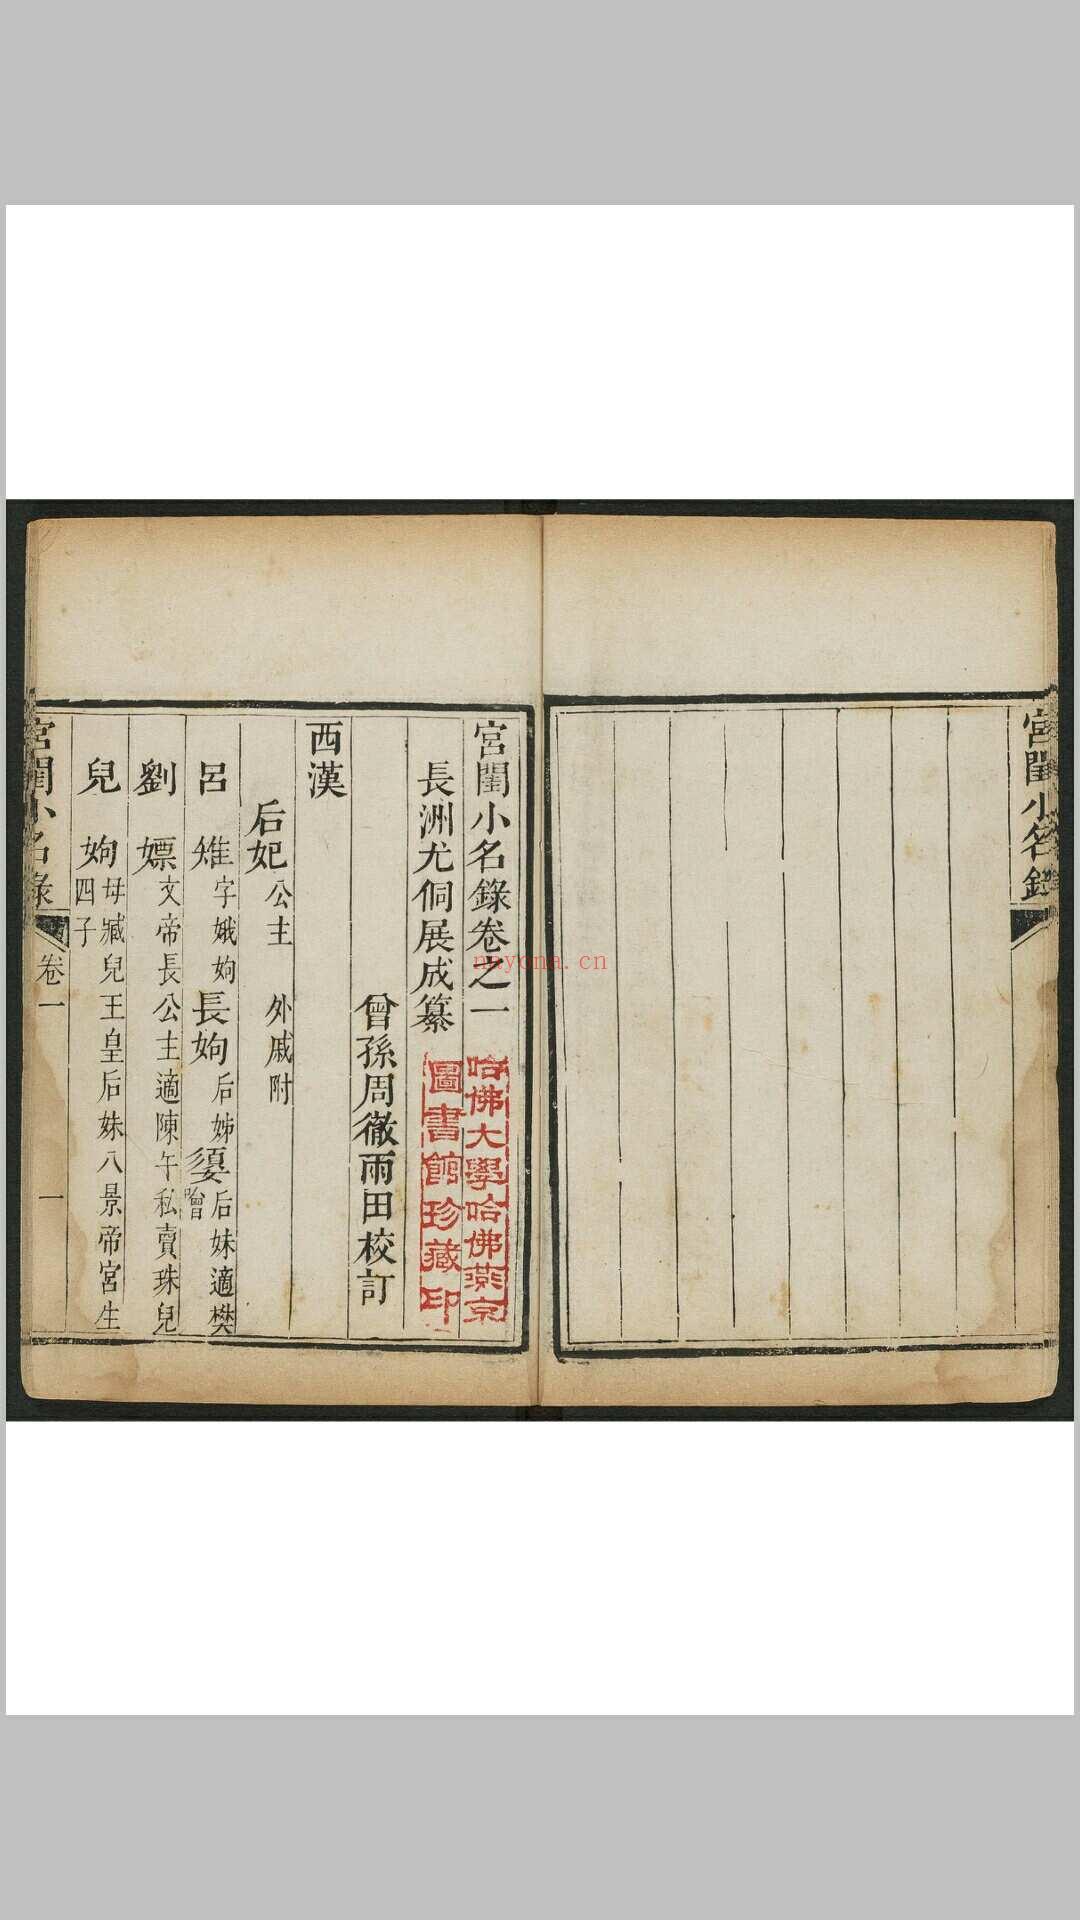 宮閨小名錄
宮閨小名錄卷之一
長洲尤侗展成纂
曾孫周徹雨田校訂
西漢
后妃 公主 外戚附
呂 雉 字娥姁 長姁 后姊 嬃 后妹適樊噲
劉 嫖 文帝長公主適陳午私賣珠兒
兒 姁 母臧兒王皇后妹入景帝宮生四子
宮閨小名錄 卷一 一
哈佛大學哈佛燕京
圖書館珍藏印
nayona.cn